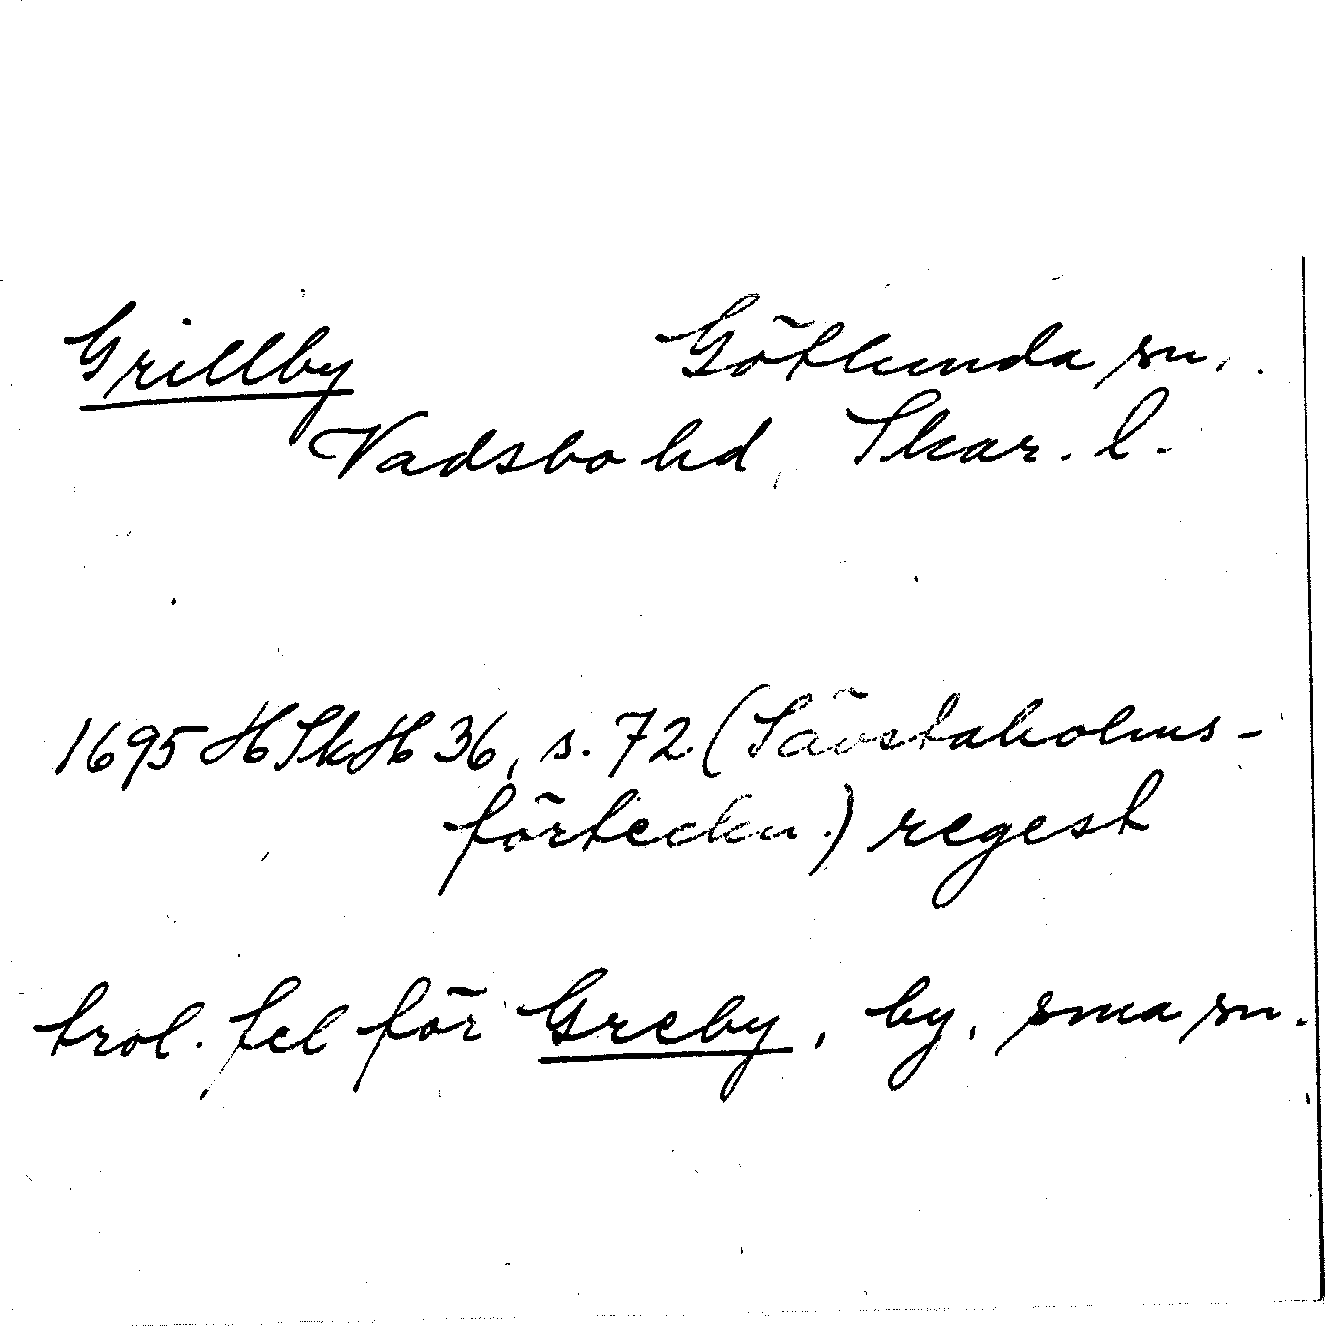 Grillby Götlunda sn.
Vadsbo hd, Skar. l.
1695 HSkH 36, s. 72 (Sävstaholms-
förteckn.) regest
trol. fel för Greby, by, sma sn.